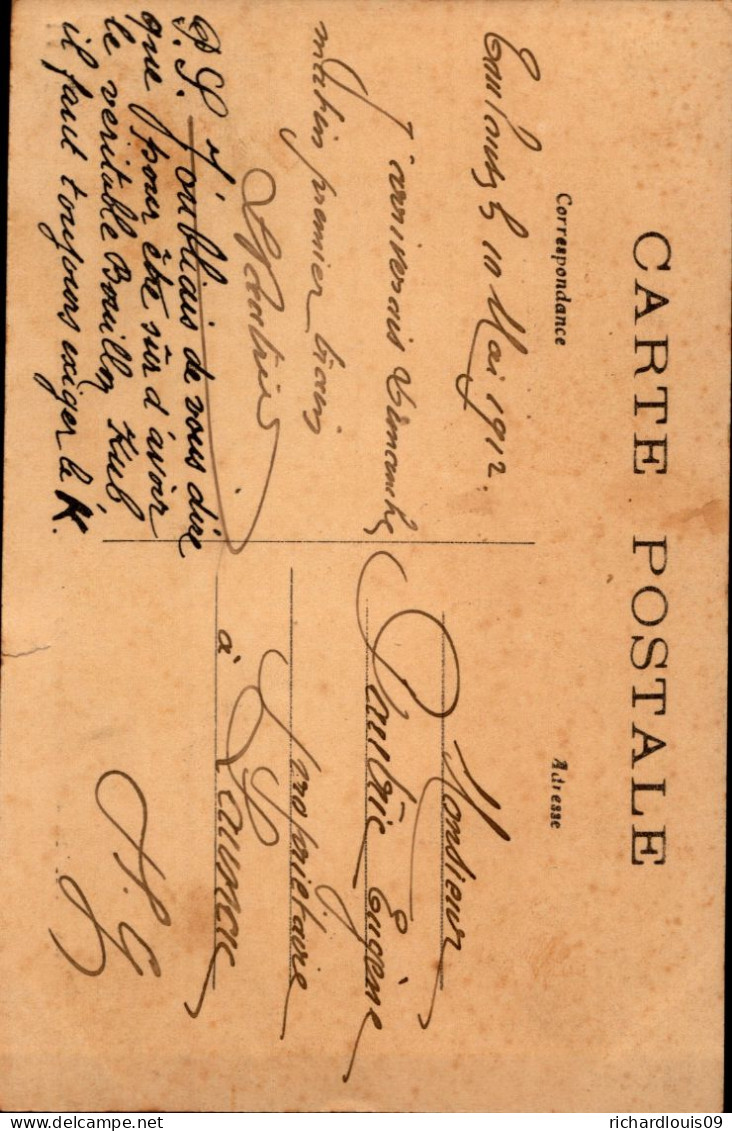 CARTE POSTALE
Correspondance
Toulouse le 10 Mai 1912.
J'arriverais Dimanche
matin premier train
P.S. J'oubliais de vous dire
que pour être sûr d'avoir
le veritable Bouillon Kub
il faut toujours exiger le K.
Adresse
Monsieur
Eugène
propriétaire
à Launac
H. G.
richardlouis09